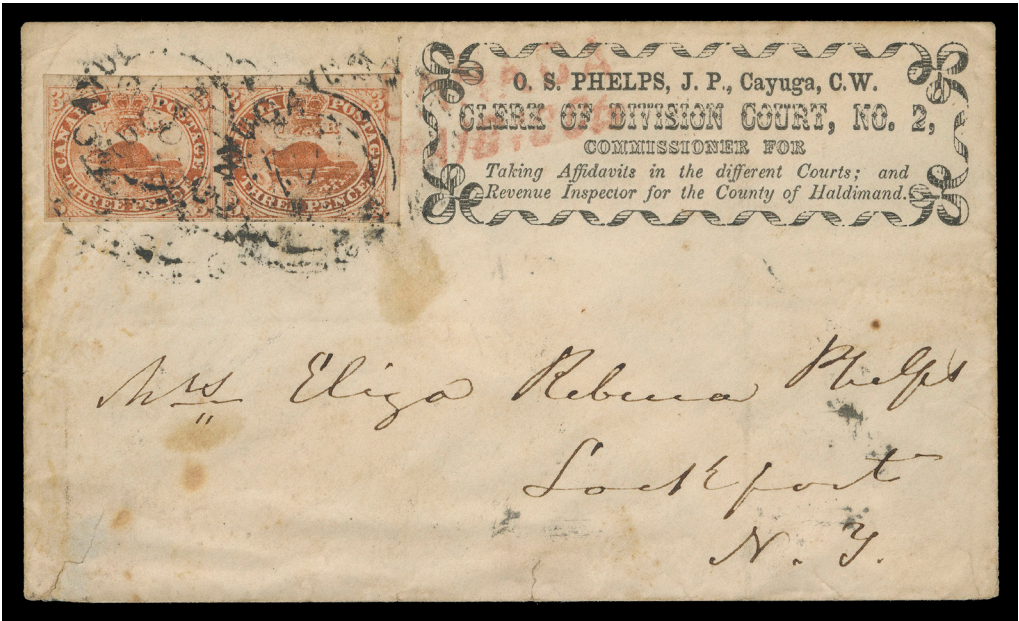 CANADA POSTAGE THREE PENCE
CANADA POSTAGE THREE PENCE
O. S. PHELPS, J. P., Cayuga, C.W.
CLERK OF DIVISION COURT, NO. 2,
COMMISSIONER FOR
Taking Affidavits in the different Courts; and
Revenue Inspector for the County of Haldimand.
Mrs Eliza Rebecca Phelps
Lockport
N. Y.